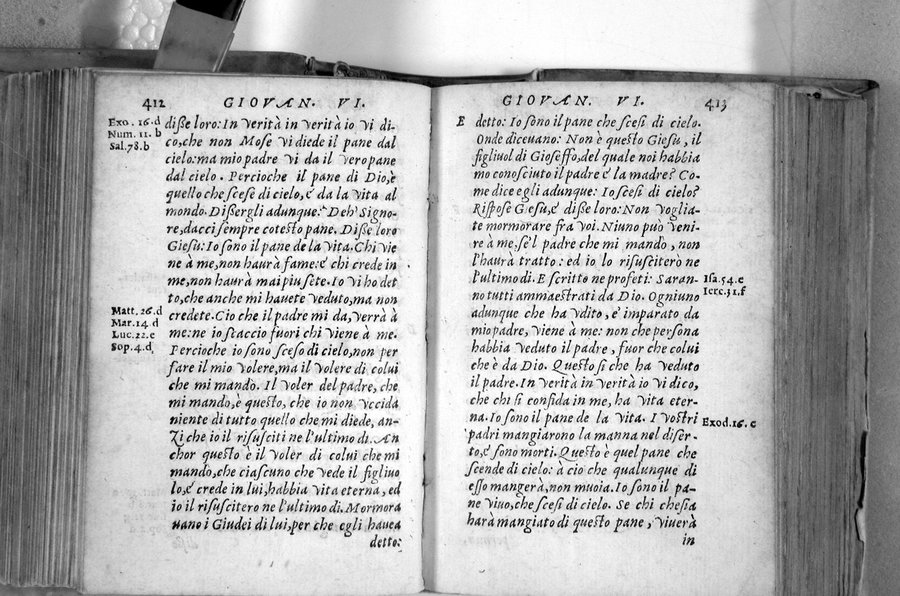 412 GIOVAN. VI.
Exo. 16.d
Num. 11. b
Sal. 78.b
diße loro: In verità in verità io vi di-
co, che non Mose vi diede il pane dal
cielo: ma mio padre vi da il vero pane
dal cielo. Percioche il pane di Dio, è
quello che scese di cielo, é da la vita al
mondo. Dißergli adunque: Deh' Signo-
re, dacci sempre cotesto pane. Diße loro
Giesù: Io sono il pane de la vita. Chi vie
ne à me, non haurà fame: é chi crede in
me, non haurà mai piu sete. Io vi ho det
to, che anche mi hauete veduto, ma non
Matt. 26.d
Mar. 14 d
Luc. 22.e
Sop. 4.d.
credete. Cio che il padre mi da, verrà à
me: ne io scaccio fuori chi viene à me.
Percioche io sono sceso di cielo, non per
fare il mio volere, ma il volere di colui
che mi mandò. Il voler del padre, che
mi mandò, è questo, che io non vccida
niente di tutto quello che mi diede, an-
zi che io il risusciti ne l'ultimo di. An
chor questo è il voler di colui che mi
mandò, che ciascuno che vede il figliuo
lo, é crede in lui, habbia vita eterna, ed
io il risusciterò ne l'ultimo di. Mormora
uano i Giudei di lui, per che egli hauea
detto:
GIOVAN. VI. 413
E detto: Io sono il pane che scesi di cielo.
Onde diceuano: Non è questo Giesù, il
figliuol di Gioseffo, del quale noi habbia
mo conosciuto il padre é la madre? Co-
me dice egli adunque: Io scesi di cielo?
Rispose Giesù, é diße loro: Non voglia-
te mormorare fra voi. Niuno può veni-
re à me, se'l padre che mi mandò, non
l'haurà tratto: ed io lo risusciterò ne
l'ultimo di. E scritto ne profeti: Saran-
Isa. 54. c
Iere. 31. f
no tutti ammaestrati da Dio. Ogniuno
adunque che ha vdito, é imparato da
mio padre, viene à me: non che persona
habbia veduto il padre, fuor che colui
che è da Dio. Questo si che ha veduto
il padre. In verità in verità io vi dico,
che chi si confida in me, ha vita eter-
na. Io sono il pane de la vita. I vostri
Exod. 16. c
padri mangiarono la manna nel diser-
to, é sono morti. Questo è quel pane che
scende di cielo: à cio che qualunque di
esso mangerà, non muoia. Io sono il pa-
ne viuo, che scesi di cielo. Se chi chesia
harà mangiato di questo pane, viuerà
in